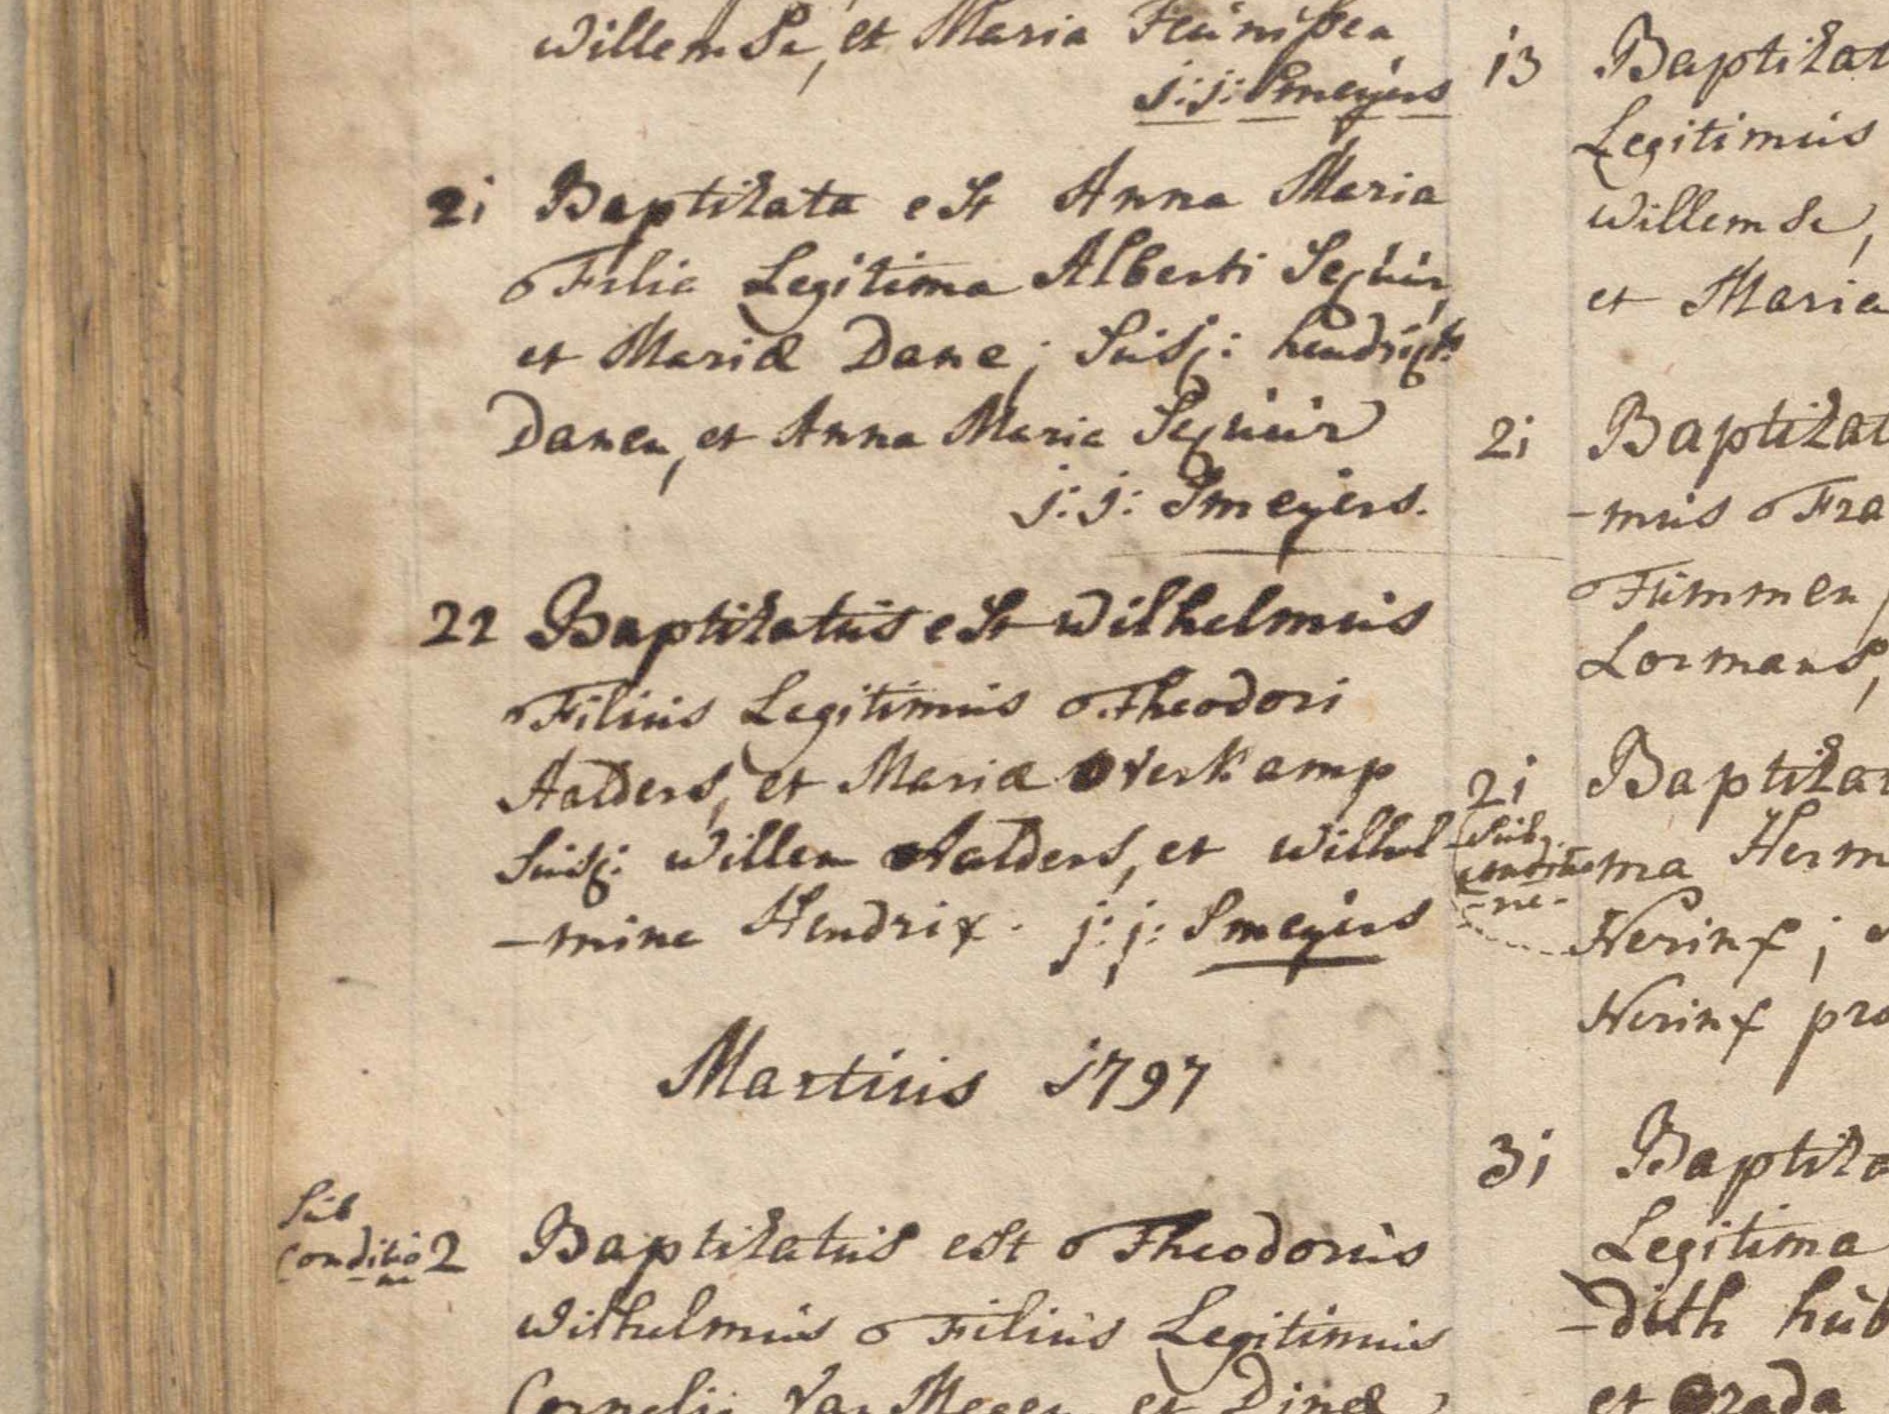 Willemse, et Maria Teunissen
j: j: Smeÿers
21 Baptizata est Anna Maria
Filia Legitima Alberti
et Mariæ Dane; Susc:
Danen, et Anna Maria
j: j: Smeÿers.
22 Baptizatus est Wilhelmus
Filius Legitimus Theodori
Aalders, et Mariæ Overkamp
Susc: Willem Aalders, et Wilhel
-mine Hendrix. j: j: Smeÿers
Martius 1797
Sub
Conditio
-ne
2 Baptizatus est Theodorus
Wilhelmus Filius Legitimus
Cornelii Van Megen et Dinæ
13 Baptizat
Legitimus
Willemse,
et Maria
21 Baptizat
-mus Fra
Timmen
Lormans,
21 Baptizat
Sub
conditio
-ne-
ma Herm
Nerinx;
Nerinx pro
31 Baptiza
Legitima
-dith hub
et Grada